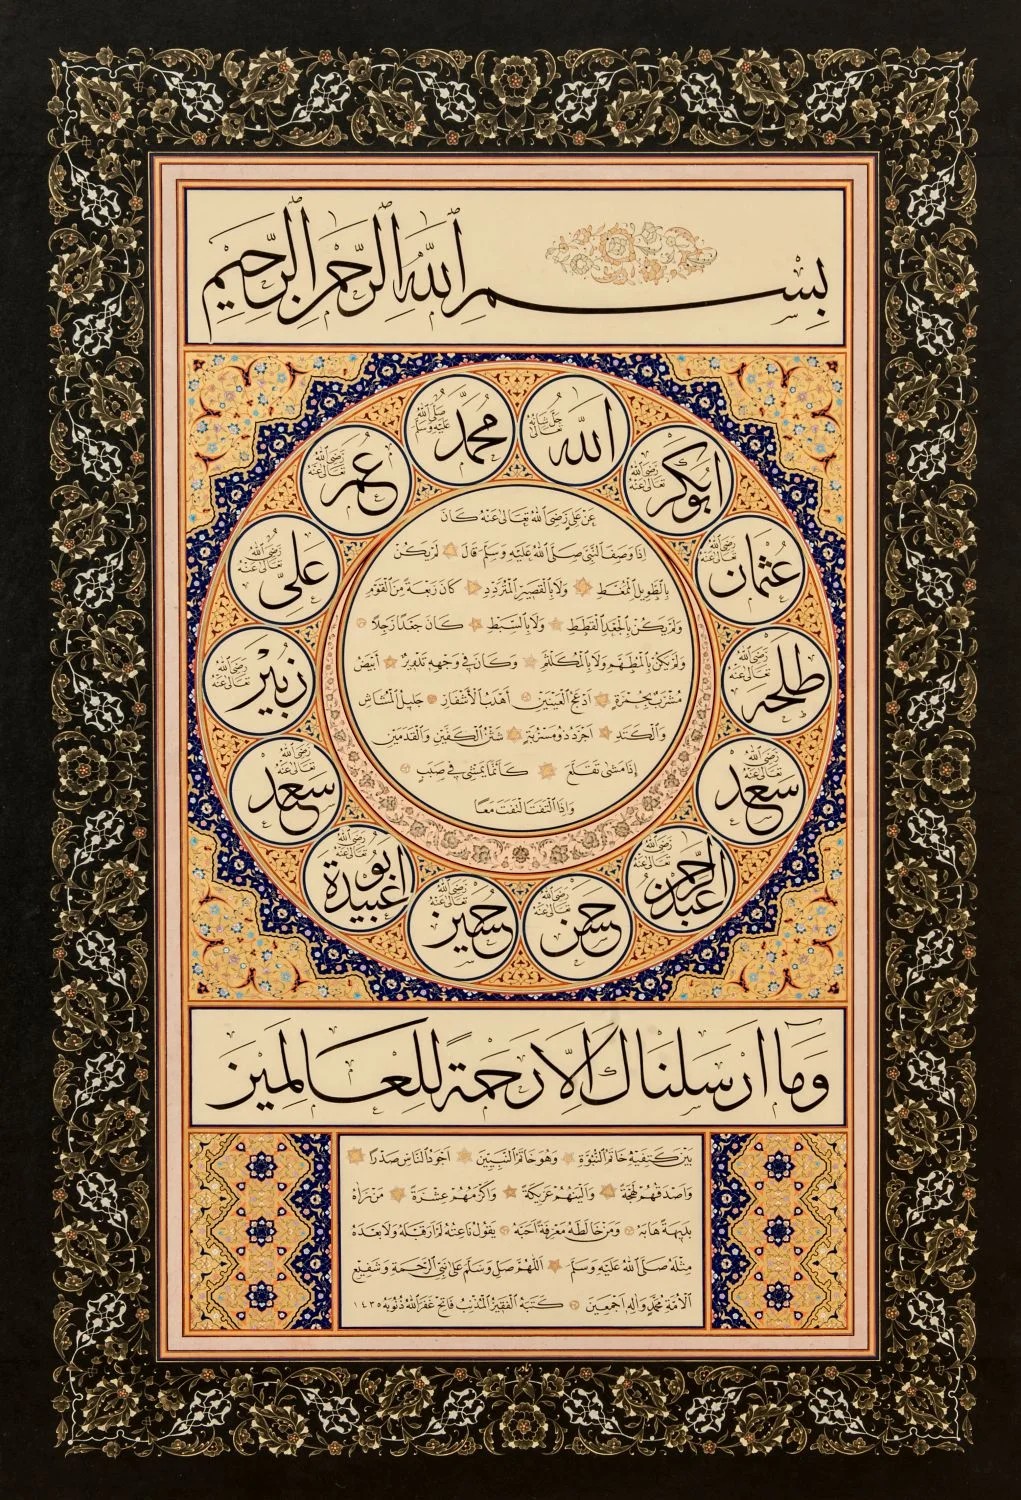 بِسْمِ ٱللّٰهِ ٱلرَّحْمٰنِ ٱلرَّحِيمِ
ٱللّٰه جَلَّ شَانُهُ تَعَالٰى
مُحَمَّد صَلَّى ٱللّٰهُ عَلَيْهِ وَسَلَّمَ
اَبُوبَكْر رَضِىَ ٱللّٰهُ تَعَالٰى عَنْهُ
عُمَر رَضِىَ ٱللّٰهُ تَعَالٰى عَنْهُ
عُثْمَان رَضِىَ ٱللّٰهُ تَعَالٰى عَنْهُ
عَلِىّ رَضِىَ ٱللّٰهُ تَعَالٰى عَنْهُ
طَلْحَه رَضِىَ ٱللّٰهُ تَعَالٰى عَنْهُ
زُبَيْر رَضِىَ ٱللّٰهُ تَعَالٰى عَنْهُ
سَعْد رَضِىَ ٱللّٰهُ تَعَالٰى عَنْهُ
سَعِيد رَضِىَ ٱللّٰهُ تَعَالٰى عَنْهُ
عَبْدُ الرَّحْمٰن رَضِىَ ٱللّٰهُ تَعَالٰى عَنْهُ
اَبُو عُبَيْدَة رَضِىَ ٱللّٰهُ تَعَالٰى عَنْهُ
حَسَن رَضِىَ ٱللّٰهُ تَعَالٰى عَنْهُ
حُسَيْن رَضِىَ ٱللّٰهُ تَعَالٰى عَنْهُ
عَنْ عَلِىٍّ رَضِىَ ٱللّٰهُ تَعَالٰى عَنْهُ كَانَ
اِذَا وَصَفَ ٱلنَّبِىَّ صَلَّى ٱللّٰهُ عَلَيْهِ وَسَلَّمَ قَالَ لَمْ يَكُنْ
بِالطَّوِيلِ ٱلْمُمَّغِطِ وَلَا بِالْقَصِيرِ ٱلْمُتَرَدِّدِ كَانَ رَبْعَةً مِنَ ٱلْقَوْمِ
وَلَمْ يَكُنْ بِالْجَعْدِ ٱلْقَطَطِ وَلَا بِالسَّبِطِ كَانَ جَعْدًا رَجِلًا
وَلَمْ يَكُنْ بِالْمُطَهَّمِ وَلَا بِالْمُكَلْثَمِ وَكَانَ فِى وَجْهِهِ تَدْوِيرٌ اَبْيَضُ
مُشْرَبٌ بِحُمْرَةٍ اَدْعَجُ ٱلْعَيْنَيْنِ اَهْدَبُ ٱلْاَشْفَارِ جَلِيلُ ٱلْمُشَاشِ
وَٱلْكَتَدِ اَجْرَدُ ذُو مَسْرُبَةٍ شَثْنُ ٱلْكَفَّيْنِ وَٱلْقَدَمَيْنِ
اِذَا مَشٰى تَقَلَّعَ كَاَنَّمَا يَمْشِى فِى صَبَبٍ
وَاِذَا ٱلْتَفَتَ ٱلْتَفَتَ مَعًا
وَمَا اَرْسَلْنَاكَ اِلَّا رَحْمَةً لِلْعَالَمِينَ
بَيْنَ كَتِفَيْهِ خَاتَمُ ٱلنُّبُوَّةِ وَهُوَ خَاتَمُ ٱلنَّبِيِّينَ اَجْوَدُ ٱلنَّاسِ صَدْرًا
وَاَصْدَقُهُمْ لَهْجَةً وَاَلْيَنُهُمْ عَرِيكَةً وَاَكْرَمُهُمْ عِشْرَةً مَنْ رَاٰهُ
بَدِيهَةً هَابَهُ وَمَنْ خَالَطَهُ مَعْرِفَةً اَحَبَّهُ يَقُولُ نَاعِتُهُ لَمْ اَرَ قَبْلَهُ وَلَا بَعْدَهُ
مِثْلَهُ صَلَّى ٱللّٰهُ عَلَيْهِ وَسَلَّمَ اَللّٰهُمَّ صَلِّ وَسَلِّمْ عَلٰى نَبِىِّ ٱلرَّحْمَةِ وَشَفِيعِ
ٱلْاُمَّةِ مُحَمَّدٍ وَاٰلِهِ اَجْمَعِينَ كَتَبَهُ ٱلْفَقِيرُ ٱلْمُذْنِبُ فَاتِحْ غَفَرَ ٱللّٰهُ ذُنُوبَهُ ١٤٣٥